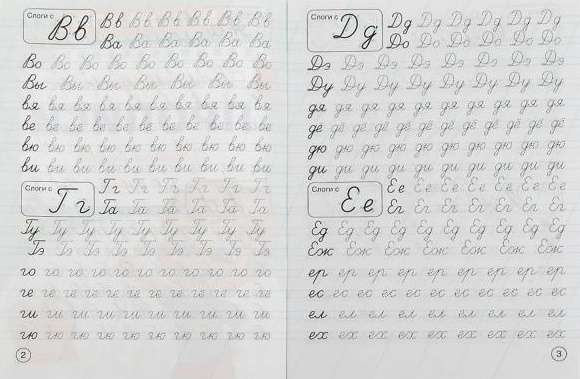 Слоги с Вв
Вв Вв Вв Вв Вв Вв Вв
Ва Ва Ва Ва Ва Ва
Во Во Во Во Во Во Во Во Во
Вы Вы Вы Вы Вы Вы
вя вя вя вя вя вя вя вя вя вя вя
ве ве ве ве ве ве ве ве ве ве
вю вю вю вю вю вю вю вю вю
ви ви ви ви ви ви ви ви ви
Слоги с Гг
Гг Гг Гг Гг Гг Гг Гг
Га Га Га Га Га Га
Гу Гу Гу Гу Гу Гу Гу Гу
Гэ Гэ Гэ Гэ Гэ Гэ Гэ
го го го го го го го го го го го
ге ге ге ге ге ге ге ге ге ге ге
ги ги ги ги ги ги ги ги ги ги
гю гю гю гю гю гю гю гю гю
2
Слоги с Дд
Дд Дд Дд Дд Дд Дд
До До До До До До
Дэ Дэ Дэ Дэ Дэ Дэ Дэ Дэ
Ду Ду Ду Ду Ду Ду Ду
дя дя дя дя дя дя дя дя дя дя
дё дё дё дё дё дё дё дё дё дё
дю дю дю дю дю дю дю дю
ди ди ди ди ди ди ди ди ди
Слоги с Ее
Ее Ее Ее Ее Ее Ее Ее
Ег Ег Ег Ег Ег Ег Ег
Ед Ед Ед Ед Ед Ед Ед Ед Ед
Еж Еж Еж Еж Еж Еж Еж
ер ер ер ер ер ер ер ер ер
ес ес ес ес ес ес ес ес ес ес
ел ел ел ел ел ел ел ел ел
ех ех ех ех ех ех ех ех ех
3